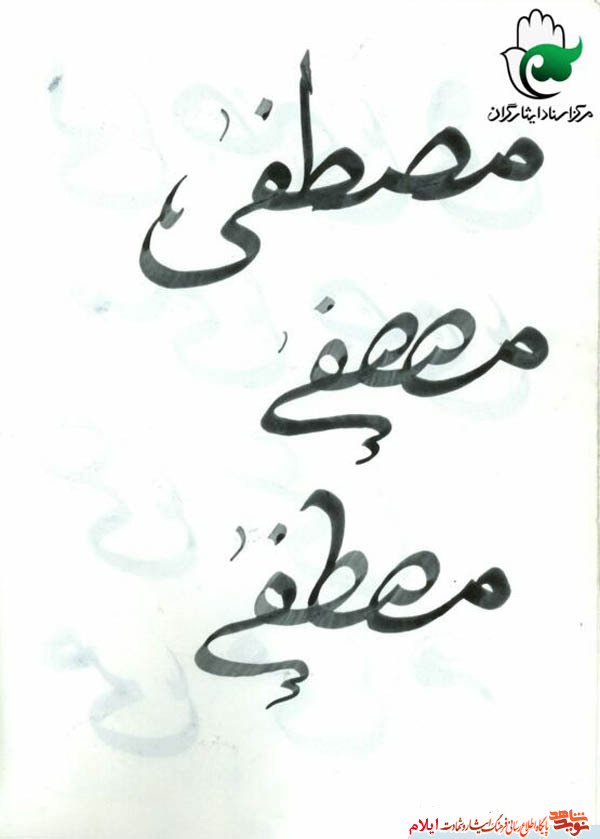 مرکز اسناد ایثارگران
مصطفی
مصطفی
مصطفی
نوید شاهد پایگاه اطلاع رسانی فرهنگ ایثار و شهادت ایلام